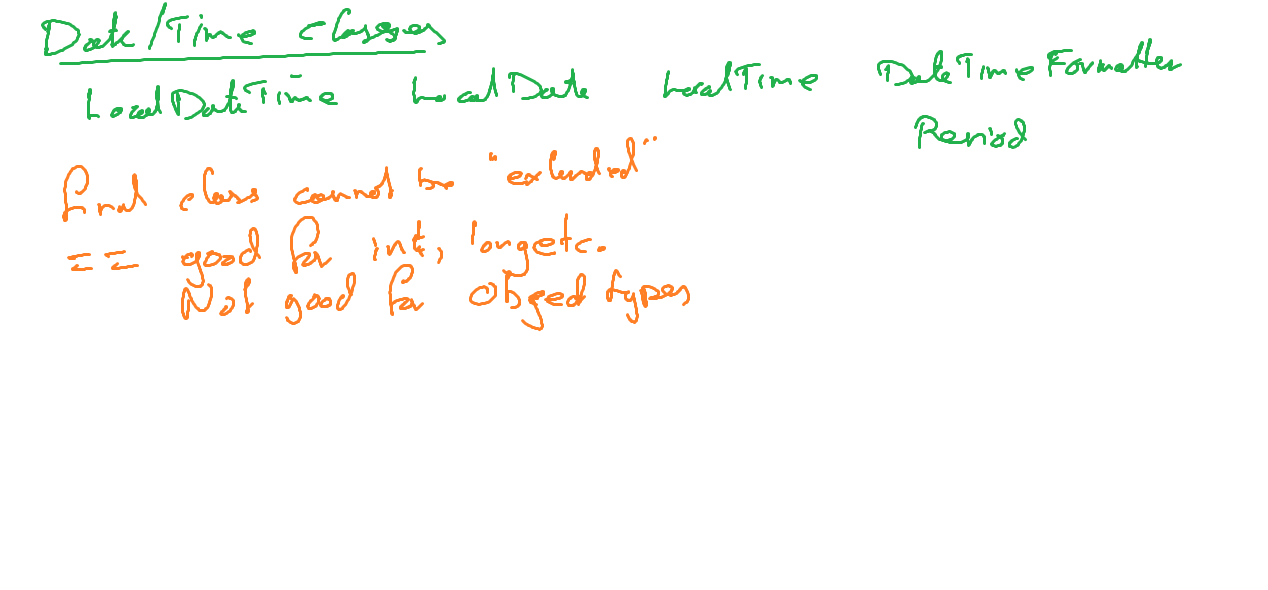 Date/Time classes
LocalDateTime LocalDate LocalTime DateTimeFormatter
Period
final class cannot be "extended"
== good for int, long etc.
Not good for Object types